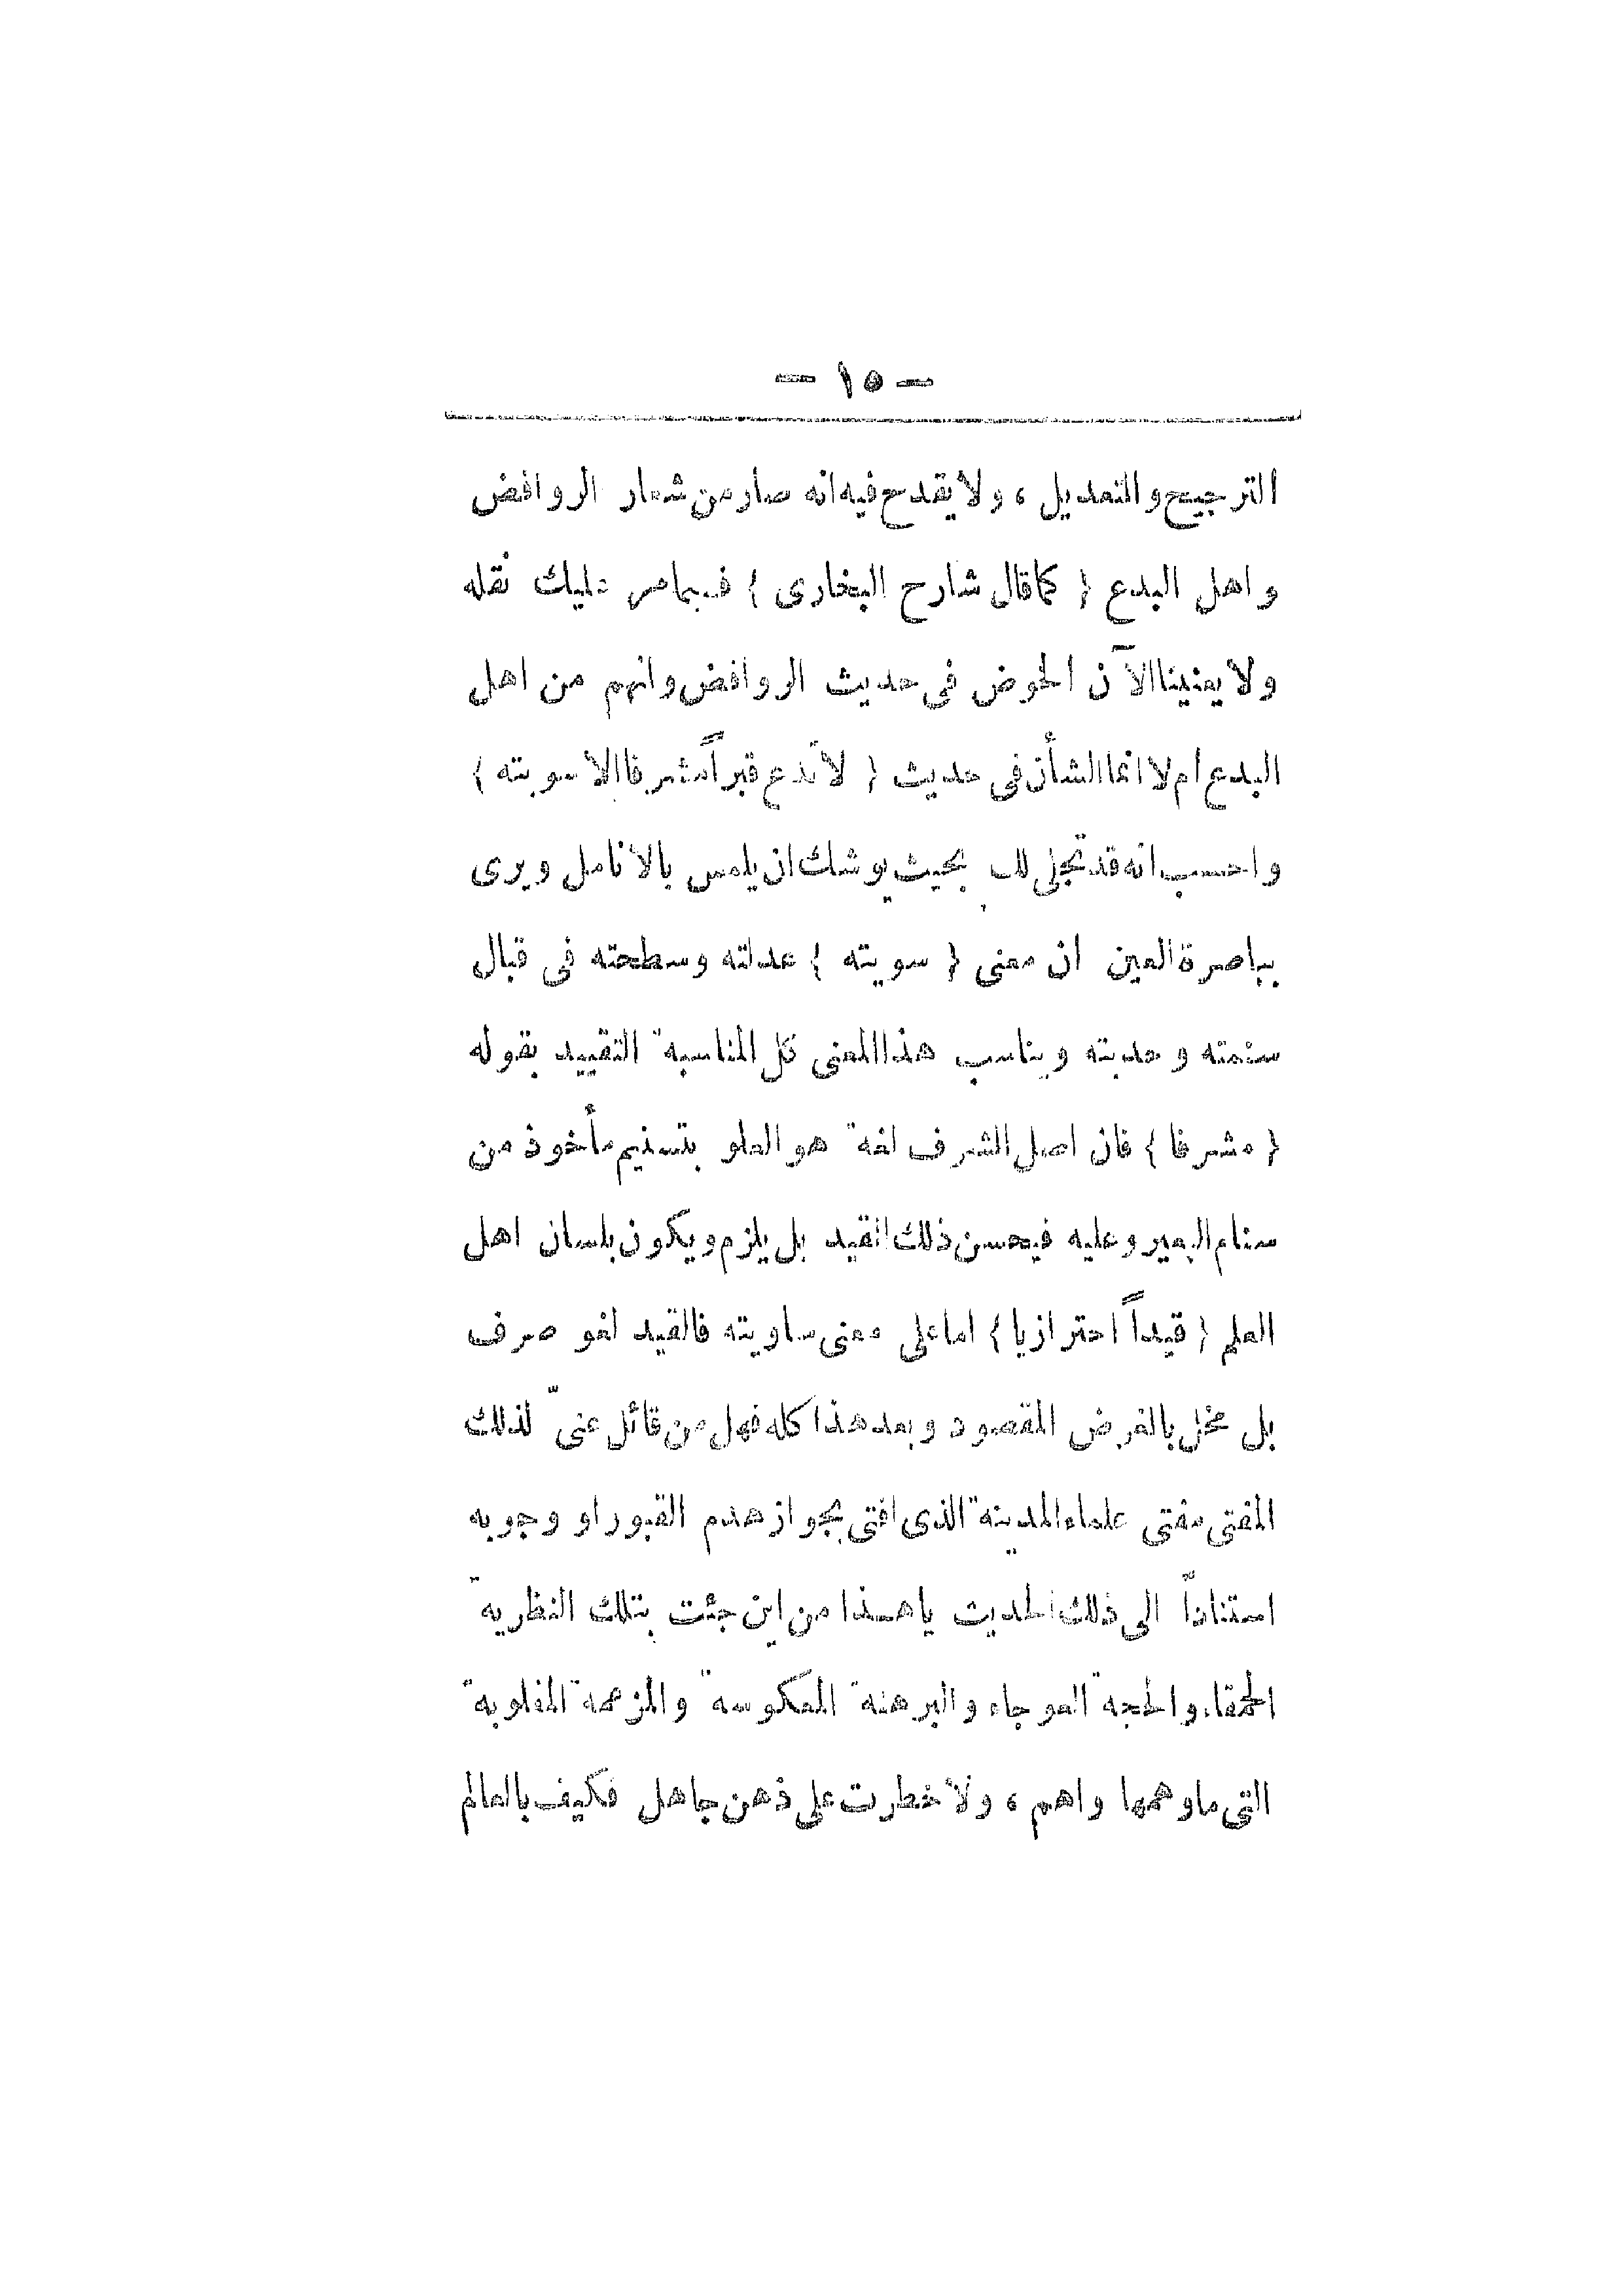 — ١٥ —
الترجيح والتعديل ، ولا يقدح فيه انه صار من شعار الروافض
واهل البدع { كما قال شارح البخارى } فيما مر عليك نقله
ولا يعنينا الآن الخوض فى حديث الروافض وانهم من اهل
البدع أم لا انما الشأن فى حديث { لا تدع قبراً مشرفا الا سويته }
واحسب انه قد تجلى لك بحيث يوشك ان يلمس بالأنامل ويرى
بباصرة العين ان معنى { سويته } عدلته وسطحته فى قبال
سنمته وحدبته ويناسب هذا المعنى كل المناسبة التقييد بقوله
{ مشرفا } فان اصل الشرف لغة هو العلو بتسنيم مأخوذ من
سنام البعير وعليه فيحسن ذلك القيد بل يلزم ويكون بلسان اهل
العلم { قيداً احترازيا } اما على معنى ساويته فالقيد لغو صرف
بل مخل بالغرض المقصود وبعد هذا كله فهل من قائل عنىّ لذلك
المفتى مفتى علماء المدينة الذى افتى بجواز هدم القبور او وجوبه
استناداً الى ذلك الحديث يا هذا من اين جئت بتلك النظرية
الحمقاء والحجة العوجاء والبرهنة المعكوسة والمزعمة المقلوبة
التى ما وهمها واهم ، ولا خطرت على ذهن جاهل فكيف بالعالم